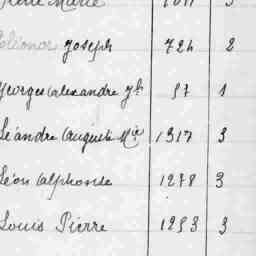 Marie
Eléonor Joseph 724 2
Georges Alexandre Jh 57 1
Léandre Auguste Mie 1317 3
Léon Alphonse 1278 3
Louis Pierre 1253 3